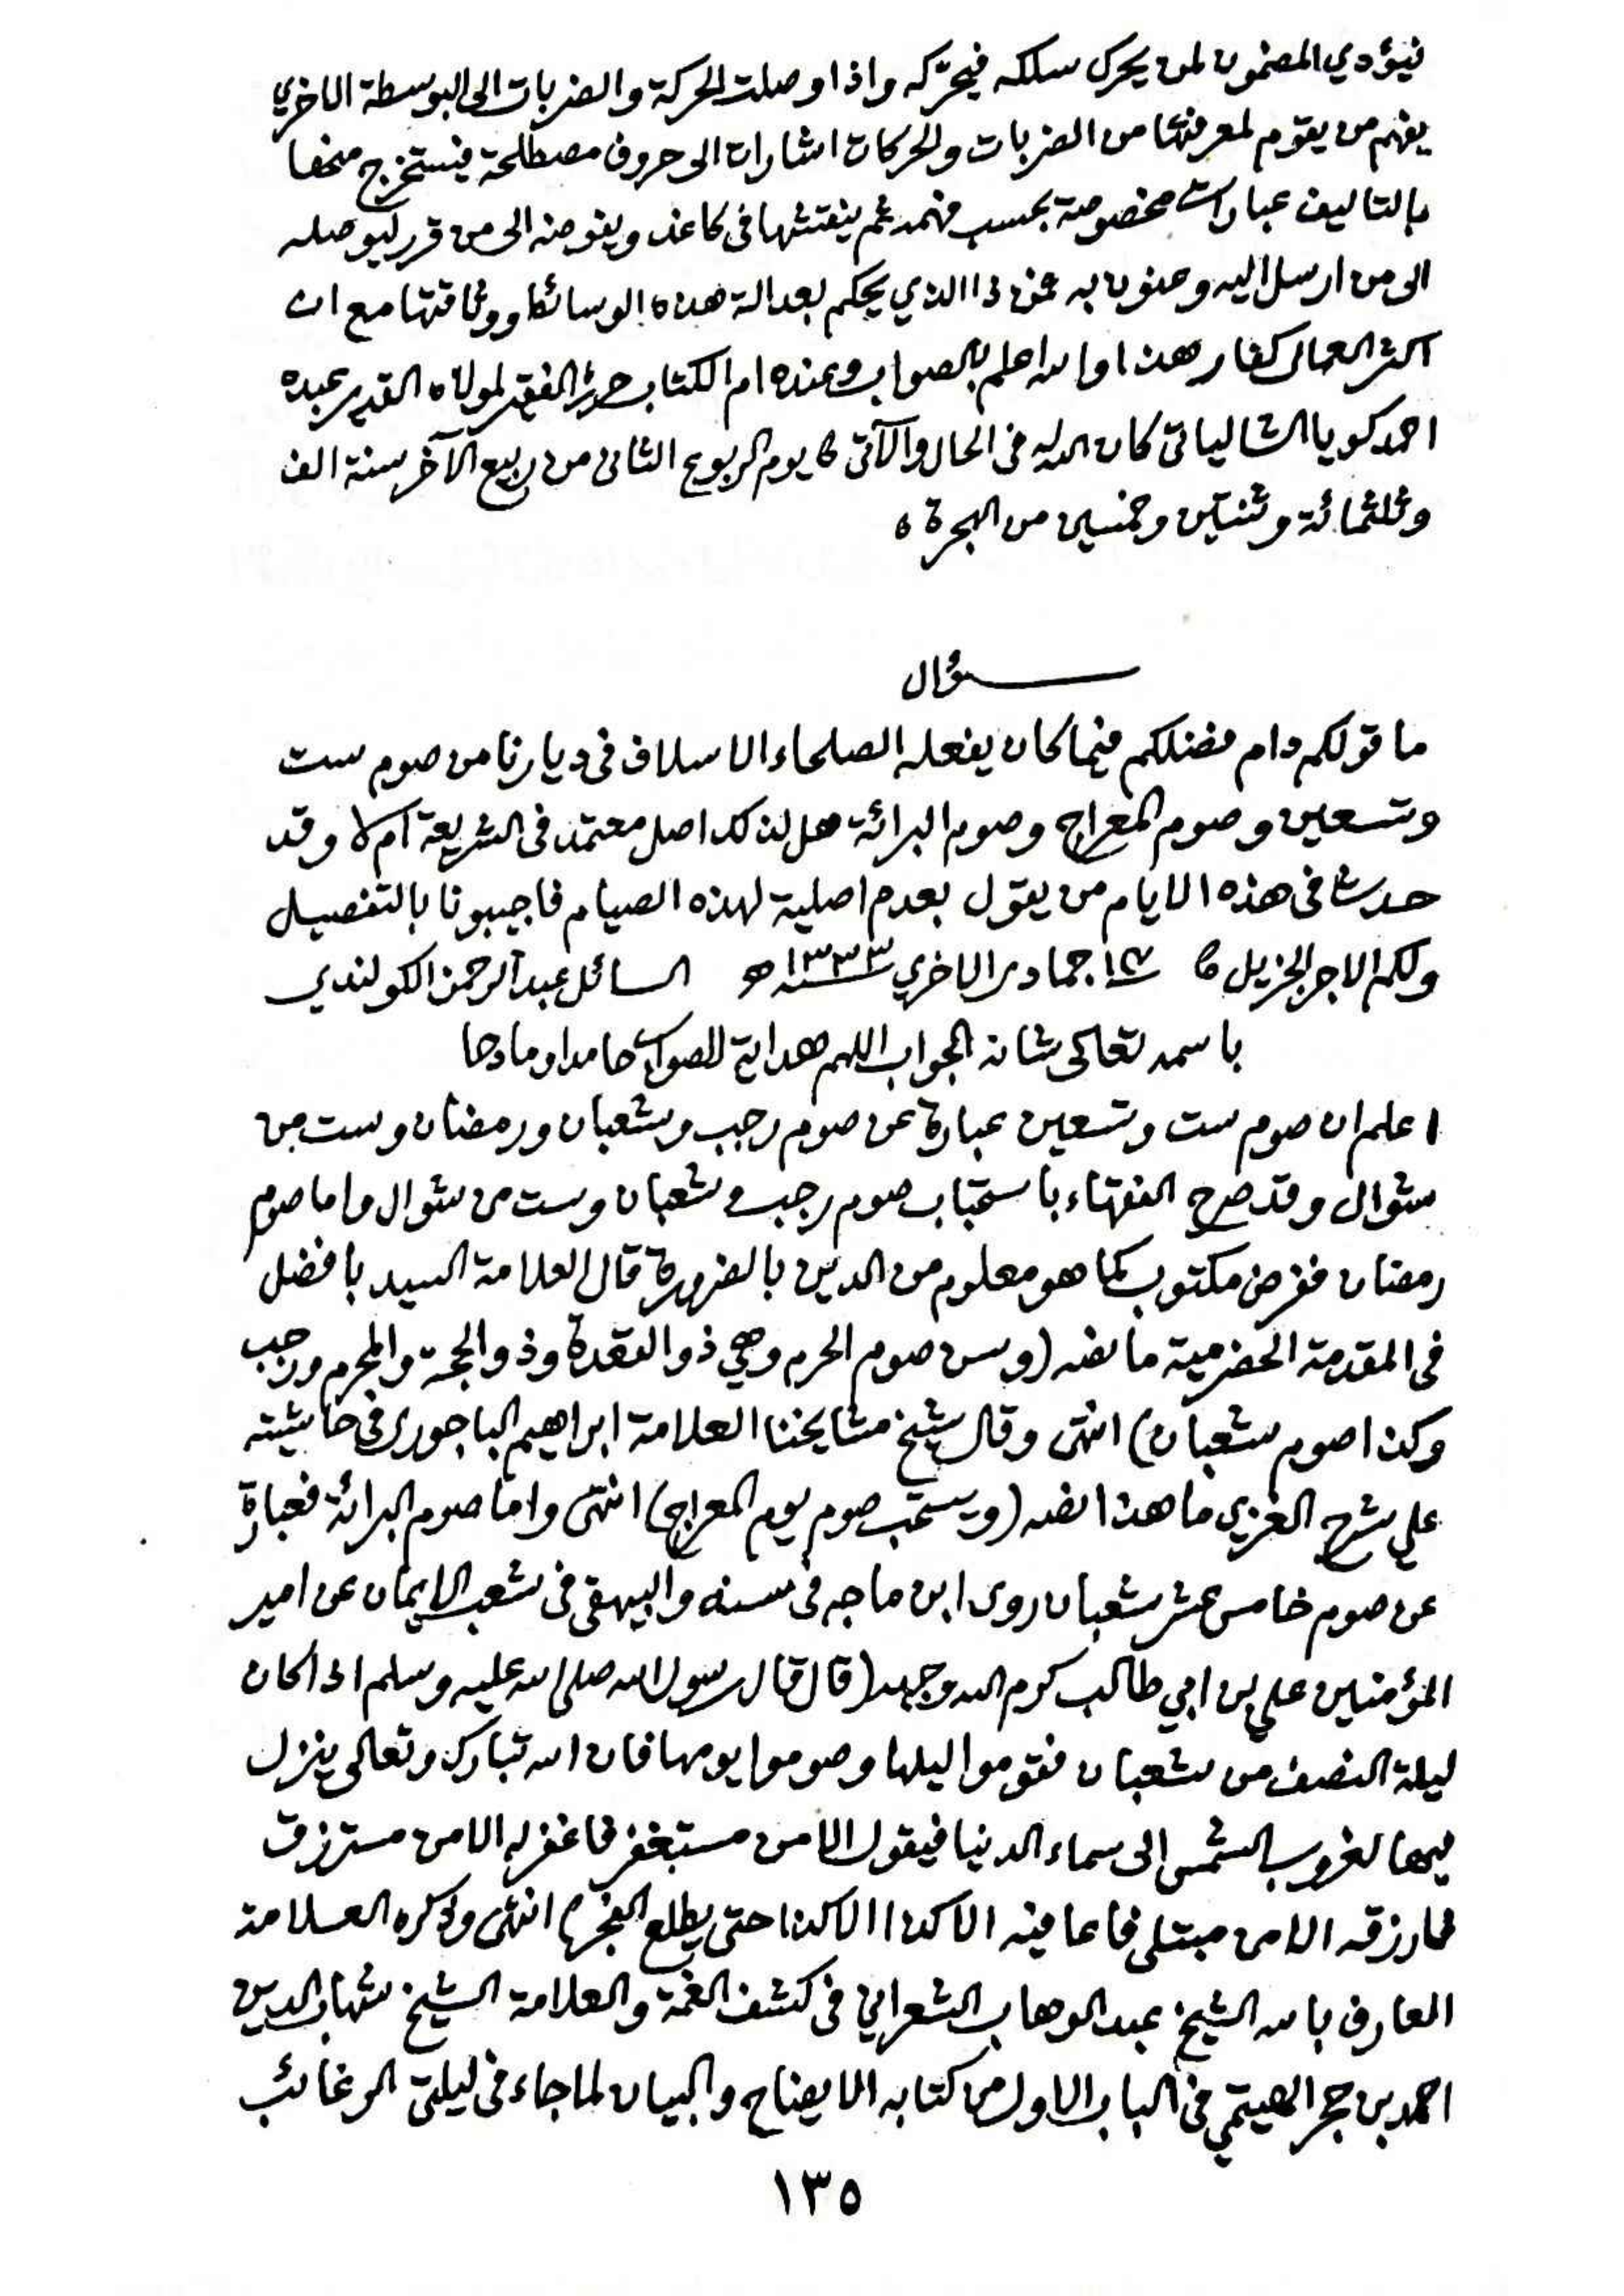 فيؤدي المضمون لمن يحرك سلكه فيحرّكه واذا وصلت الحركة والضربات الى البوسطة الاخري
يفهم من يقوم لمعرفتها من الضربات والحركات اشارات الى حروف مصطلحة فيستخرج منها
بالتاليف عبارات مخصوصة بحسب فهمه ثم ينقشها في كاغذ ويفوضه الى من قرر ليوصله
الى من ارسل اليه وعنون به فمن ذا الذي يحكم بعدالة هذه الوسائط ووثاقتها مع ان
اكثر العمال كفار هذا والله اعلم بالصواب وعنده ام الكتاب حرره الفقير لمولاه القدير عبده
احمد كويا الشالياتي كان الله له في الحال والآتي يوم الربوع الثاني من ربيع الآخر سنة الف
وثلثمائة وثنتين وخمسين من الهجرة
سؤال
ما قولكم دام فضلكم فيما كان يفعله الصلحاء الاسلاف في ديارنا من صوم ست
وتسعين وصوم المعراج وصوم البرائة هل لذلك اصل معتمد في الشريعة ام لا وقد
حدث في هذه الايام من يقول بعدم اصلية لهذه الصيام فاجيبونا بالتفصيل
ولكم الاجر الجزيل جمادى الاخري ١٣٣٣ه السائل عبد الرحمن الكولندي
باسمه تعالى شانه الجواب اللهم هداية للصواب حامدا ومادحا
اعلم ان صوم ست وتسعين عبارة عن صوم رجب وشعبان ورمضان وست من
شوال وقد صرح الفقهاء باستحباب صوم رجب وشعبان وست من شوال واما صوم
رمضان ففرض مكتوب كما هو معلوم من الدين بالضرورة قال العلامة السيد بافضل
في المقدمة الحضرمية ما نصه (وسن صوم الحرم وهي ذو القعدة وذو الحجة والمحرم ورجب
وكذا صوم شعبان) انتهى وقال شيخ مشايخنا العلامة ابراهيم الباجورى في حاشيته
علي شرح الغزي ما هذا نصه (ويستحب صوم يوم المعراج) انتهى واما صوم البرائة فعبارة
عن صوم خامس عشر شعبان روى ابن ماجه في سننه والبيهقي في شعب الايمان عن امير
المؤمنين علي بن ابي طالب كرم الله وجهه (قال قال رسول الله صلى الله عليه وسلم اذا كان
ليلة النصف من شعبان فقوموا ليلها وصوموا يومها فان الله تبارك وتعالى ينزل
فيها لغروب الشمس الى سماء الدنيا فيقول الا من مستغفر فاغفر له الا من مسترزق
فارزقه الا من مبتلى فاعافيه الا كذا الا كذا حتى يطلع الفجر) انتهى وذكره العلامة
العارف بالله الشيخ عبد الوهاب الشعراني في كشف الغمة والعلامة الشيخ شهاب الدين
احمد بن حجر الهيتمي في الباب الاول من كتابه الايضاح والبيان لما جاء في ليلتي الرغائب
١٣٥